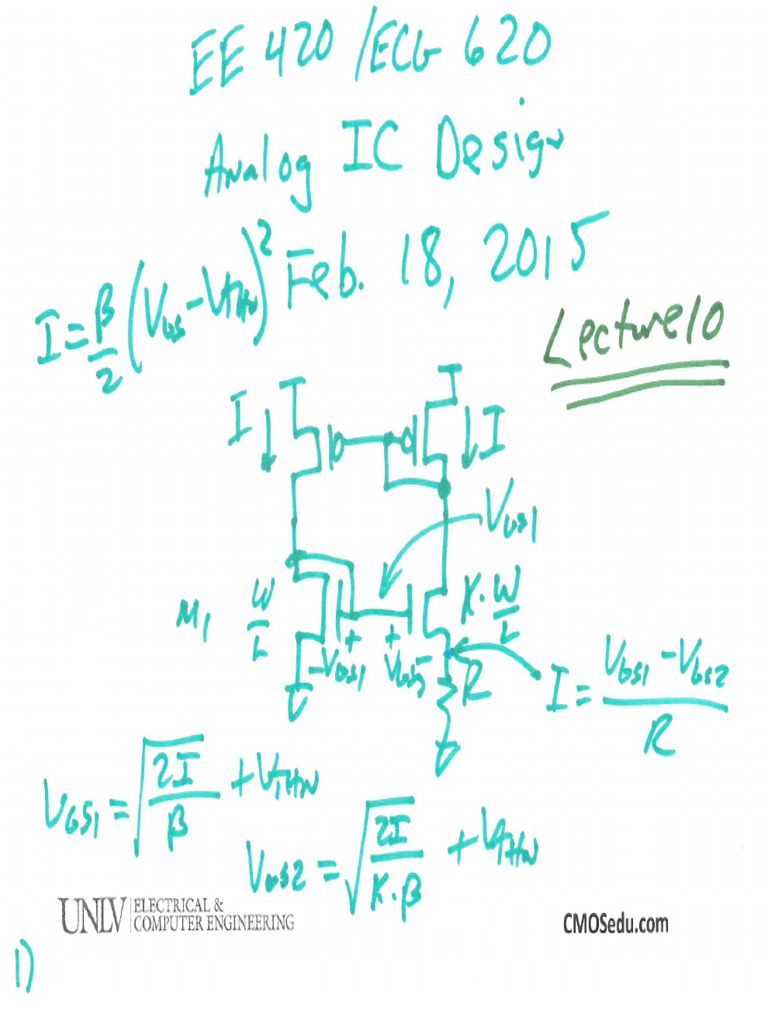 EE 420/ECG 620
Analog IC Design
Feb. 18, 2015
I = β/2 (VGS - VTHN)²
Lecture 10
I
I
VGS1
M1
W/L
K·W/L
+
+
-VGS1
VGS2-
R
I = (VGS1 - VGS2)/R
VGS1 = √(2I/β) + VTHN
VGS2 = √(2I/(K·β)) + VTHN
UNLV | ELECTRICAL &
COMPUTER ENGINEERING
CMOSedu.com
1)